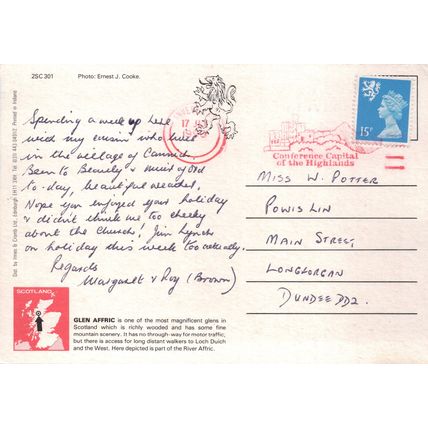 2SC 301
Photo: Ernest J. Cooke.
Printed in Ireland
Dist. by Innes & Crombie Ltd., Edinburgh
17
15P
Conference Capital
of the Highlands
Spending a week up here
with my cousin who lives
in the village of Cannich.
Been to Beauly & Muir of Ord
to-day, beautiful weather.
Hope you enjoyed your holiday
& didn't think me too cheeky
about the Church! Jim Lynch
on holiday this week too actually.
Regards
Margaret & Roy (Brown)
MISS W. POTTER
POWIS LIN
MAIN STREET
LONGFORGAN
DUNDEE DD2.
SCOTLAND
GLEN AFFRIC is one of the most magnificent glens in
Scotland which is richly wooded and has some fine
mountain scenery. It has no through-way for motor traffic,
but there is access for long distant walkers to Loch Duich
and the West. Here depicted is part of the River Affric.